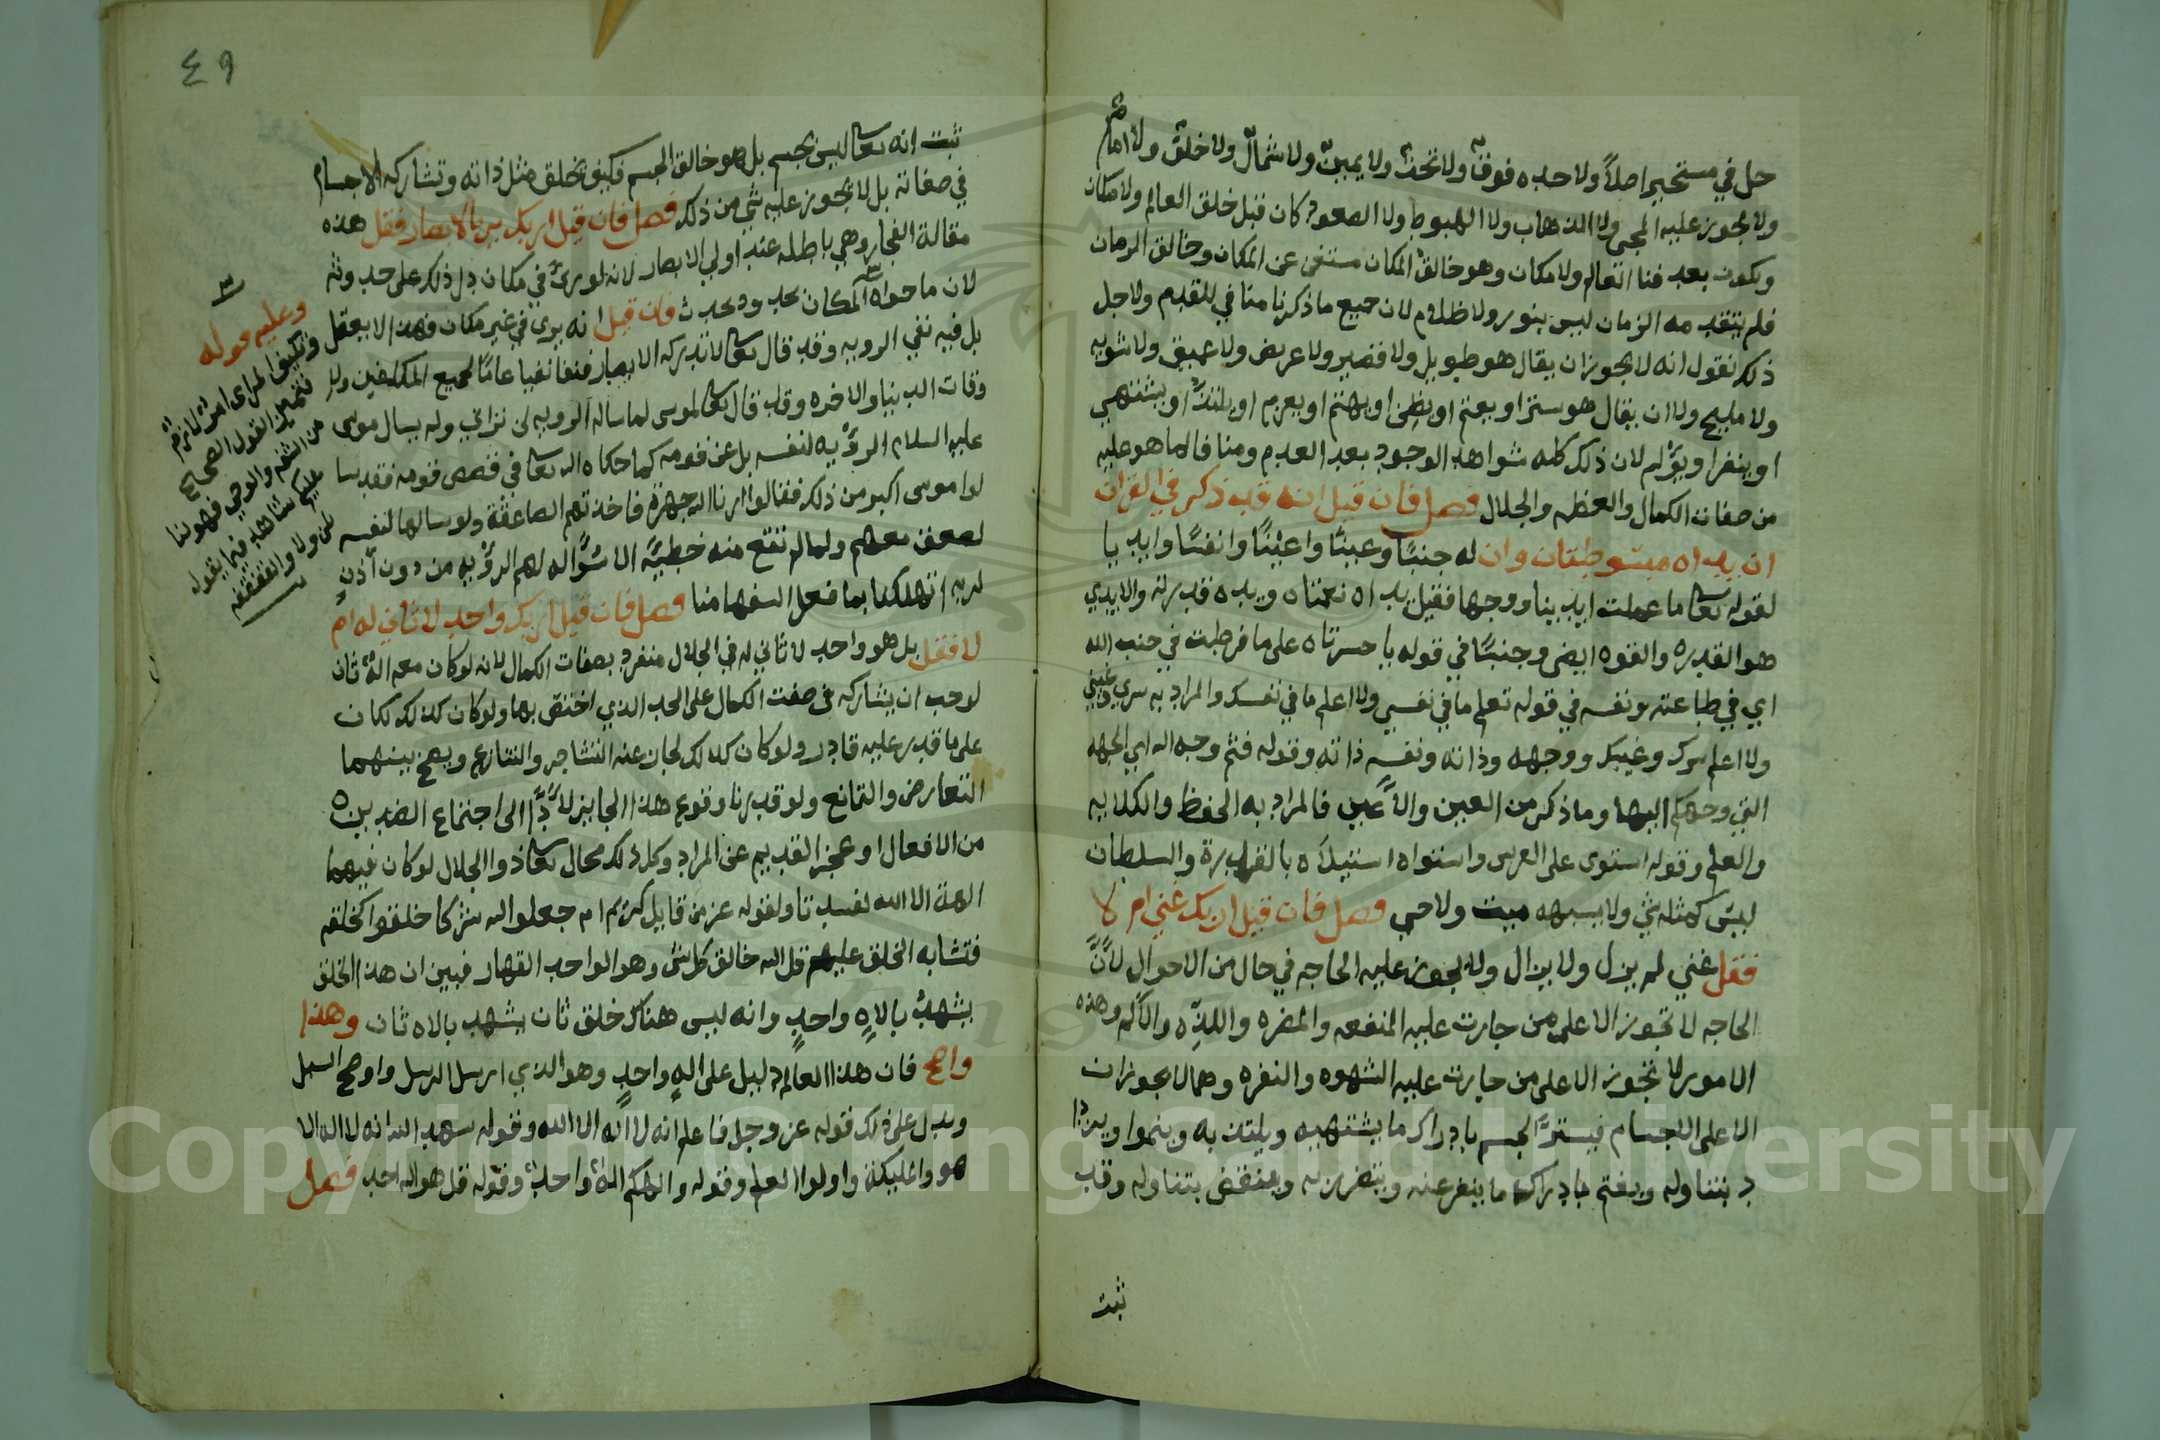 حل في مستحيز اصلاً ولا حده فوق ولا تحت ولا يمين ولا شمال ولا خلف ولا امام
ولا يجوز عليه المجى ولا الذهاب ولا الهبوط ولا الصعود كان قبل خلق العالم ولا مكان
ويكون بعد فنا العالم ولا مكان وهو خالق المكان مستغن عن المكان وخالق الزمان
فلم يتقدمه الزمان ليس بنور ولا ظلام لان جميع ما ذكرنا منافي للقدم ولاجل
ذلك نقول انه لا يجوز ان يقال هو طويل ولا قصير ولا عريض ولا عميق ولا شويه
ولا مليح ولا ان يقال هو يستر او يغتم او يظن او يهتم او يعزم او يلتذ او يشتهي
او ينفر او يؤلم لان ذلك كله شواهد الوجود بعد العدم ومنافا لما هو عليه
من صفات الكمال والعظمه والجلال فصل فان قيل انه قد ذكر في القران
ان يداه مبسوطتان وان له جنبًا وعينًا واعينًا وانفسًا وايديا
لقوله تعا ما عملت ايدينا ووجها فقيل يداه نعمتاه ويده قدرته والايدي
هو القدره والقوه ايضى وجنبًا في قوله يا حسرتاه على ما فرطت في جنب الله
اي في طاعته ونفسه في قوله تعلم ما في نفسي ولا اعلم ما في نفسك والمراد به سري وغيبي
ولا اعلم سرك وغيبك ووجهه وذاته ونفسه ذاته وقوله فثم وجه الله اي الجهه
التي وجهكم اليها وما ذكر من العين والاعين فالمراد به الحفظ والكلايه
والعلم وقوله استوى على العرش واستواه استيلاه بالقدرة والسلطان
ليس كمثله شي ولا يشبهه ميت ولا حي فصل فان قيل اربك غني ام لا
فقل غني لم يزل ولا يزال ولا يجوز عليه الحاجه في حال من الاحوال لانّ
الحاجه لا تجوز الا على من جازت عليه المنفعه والمضره واللذه والالم وهذه
الامور لا تجوز الا على من جازت عليه الشهوه والنفره وهما لا يجوزان
الا على الاجسام فيستر الجسم بادراك ما يشتهيه ويلتذ به وينموا ويزدا
د بتناوله ويغتم بادراك ما ينفر عنه ويتضرر به وينتقص بتناوله وقد
ثبت
٤٩
ثبت انه تعا ليس بجسم بل هو خالق الجسم فكيف يخلق مثل ذاته وتشاركه الاجسام
في صفاته بل لا يجوز عليه شي من ذلك فصل فان قيل اربك يرى بالابصار فقل هذه
مقالة الفجار وهي باطله عند اولي الابصار لانه لو رئ في مكان دل ذلك على حدوثه
لان ما حواه المكان محدود محدث فان قيل انه يرى في غير مكان فهذا لا يعقل
بل فيه نفي الرويه وقد قال تعا لا تدركه الابصار فنفا نفيا عامًا لجميع المكلفين ولا
وقات الدنيا والاخره وقد قال تعا لموسى لما ساله الرويه لن تراني وله يسال موسى
عليه السلام الرؤيه لنفسه بل عن قومه كما حكاه الله تعا في قصص قومه فقد سا
لوا موسى اكبر من ذلك فقالوا ارنا الله جهرة فاخذتهم الصاعقة ولو سالها لنفسه
لصعق معهم ولما لم تقع منه خطية الا سؤاله لهم الرؤيه من دون اذن
لربه اتهلكنا بما فعل السفها منا فصل فان قيل اربك واحد لا ثاني له ام
لا فقل بل هو واحد لا ثاني له في الجلال متفرد بصفات الكمال لانه لو كان معه اله ثان
لوجب ان يشاركه في صفت الكمال على الحد الذي اختص بها ولو كان كذلك لكان
على ما قدر عليه قادر ولو كان كذلك لجاز عنه التشاجر والتنازع ويصح بينهما
التعارض والتمانع ولو قدرنا وقوع هذا الجايز لأدّا الى اجتماع الضدين
من الافعال او عجز القديم عن المراد وكل ذلك محال تعا ذو الجلال لو كان فيهما
الهة الا الله لفسدتا ولقوله عز من قايل كريم ام جعلوا لله شركا خلقوا كخلقه
فتشابه الخلق عليهم قل الله خالق كل شي وهو الواحد القهار فبين ان هذا الخلق
يشهد بالاه واحد وانه ليس هناك خلق ثان يشهد بالاه ثان وهذا
واضح فان هذا العالم دليل على اله واحد وهو الذي ارسل الرسل واوضح السبل
ويدل على ذلك قوله عز وجل فاعلم انه لا اله الا الله وقوله شهد الله انه لا اله الا
هو والمليكة واولوا العلم وقوله والهكم اله واحد وقوله قل هو الله احد فصل
وعليه قوله
القول الصحيح